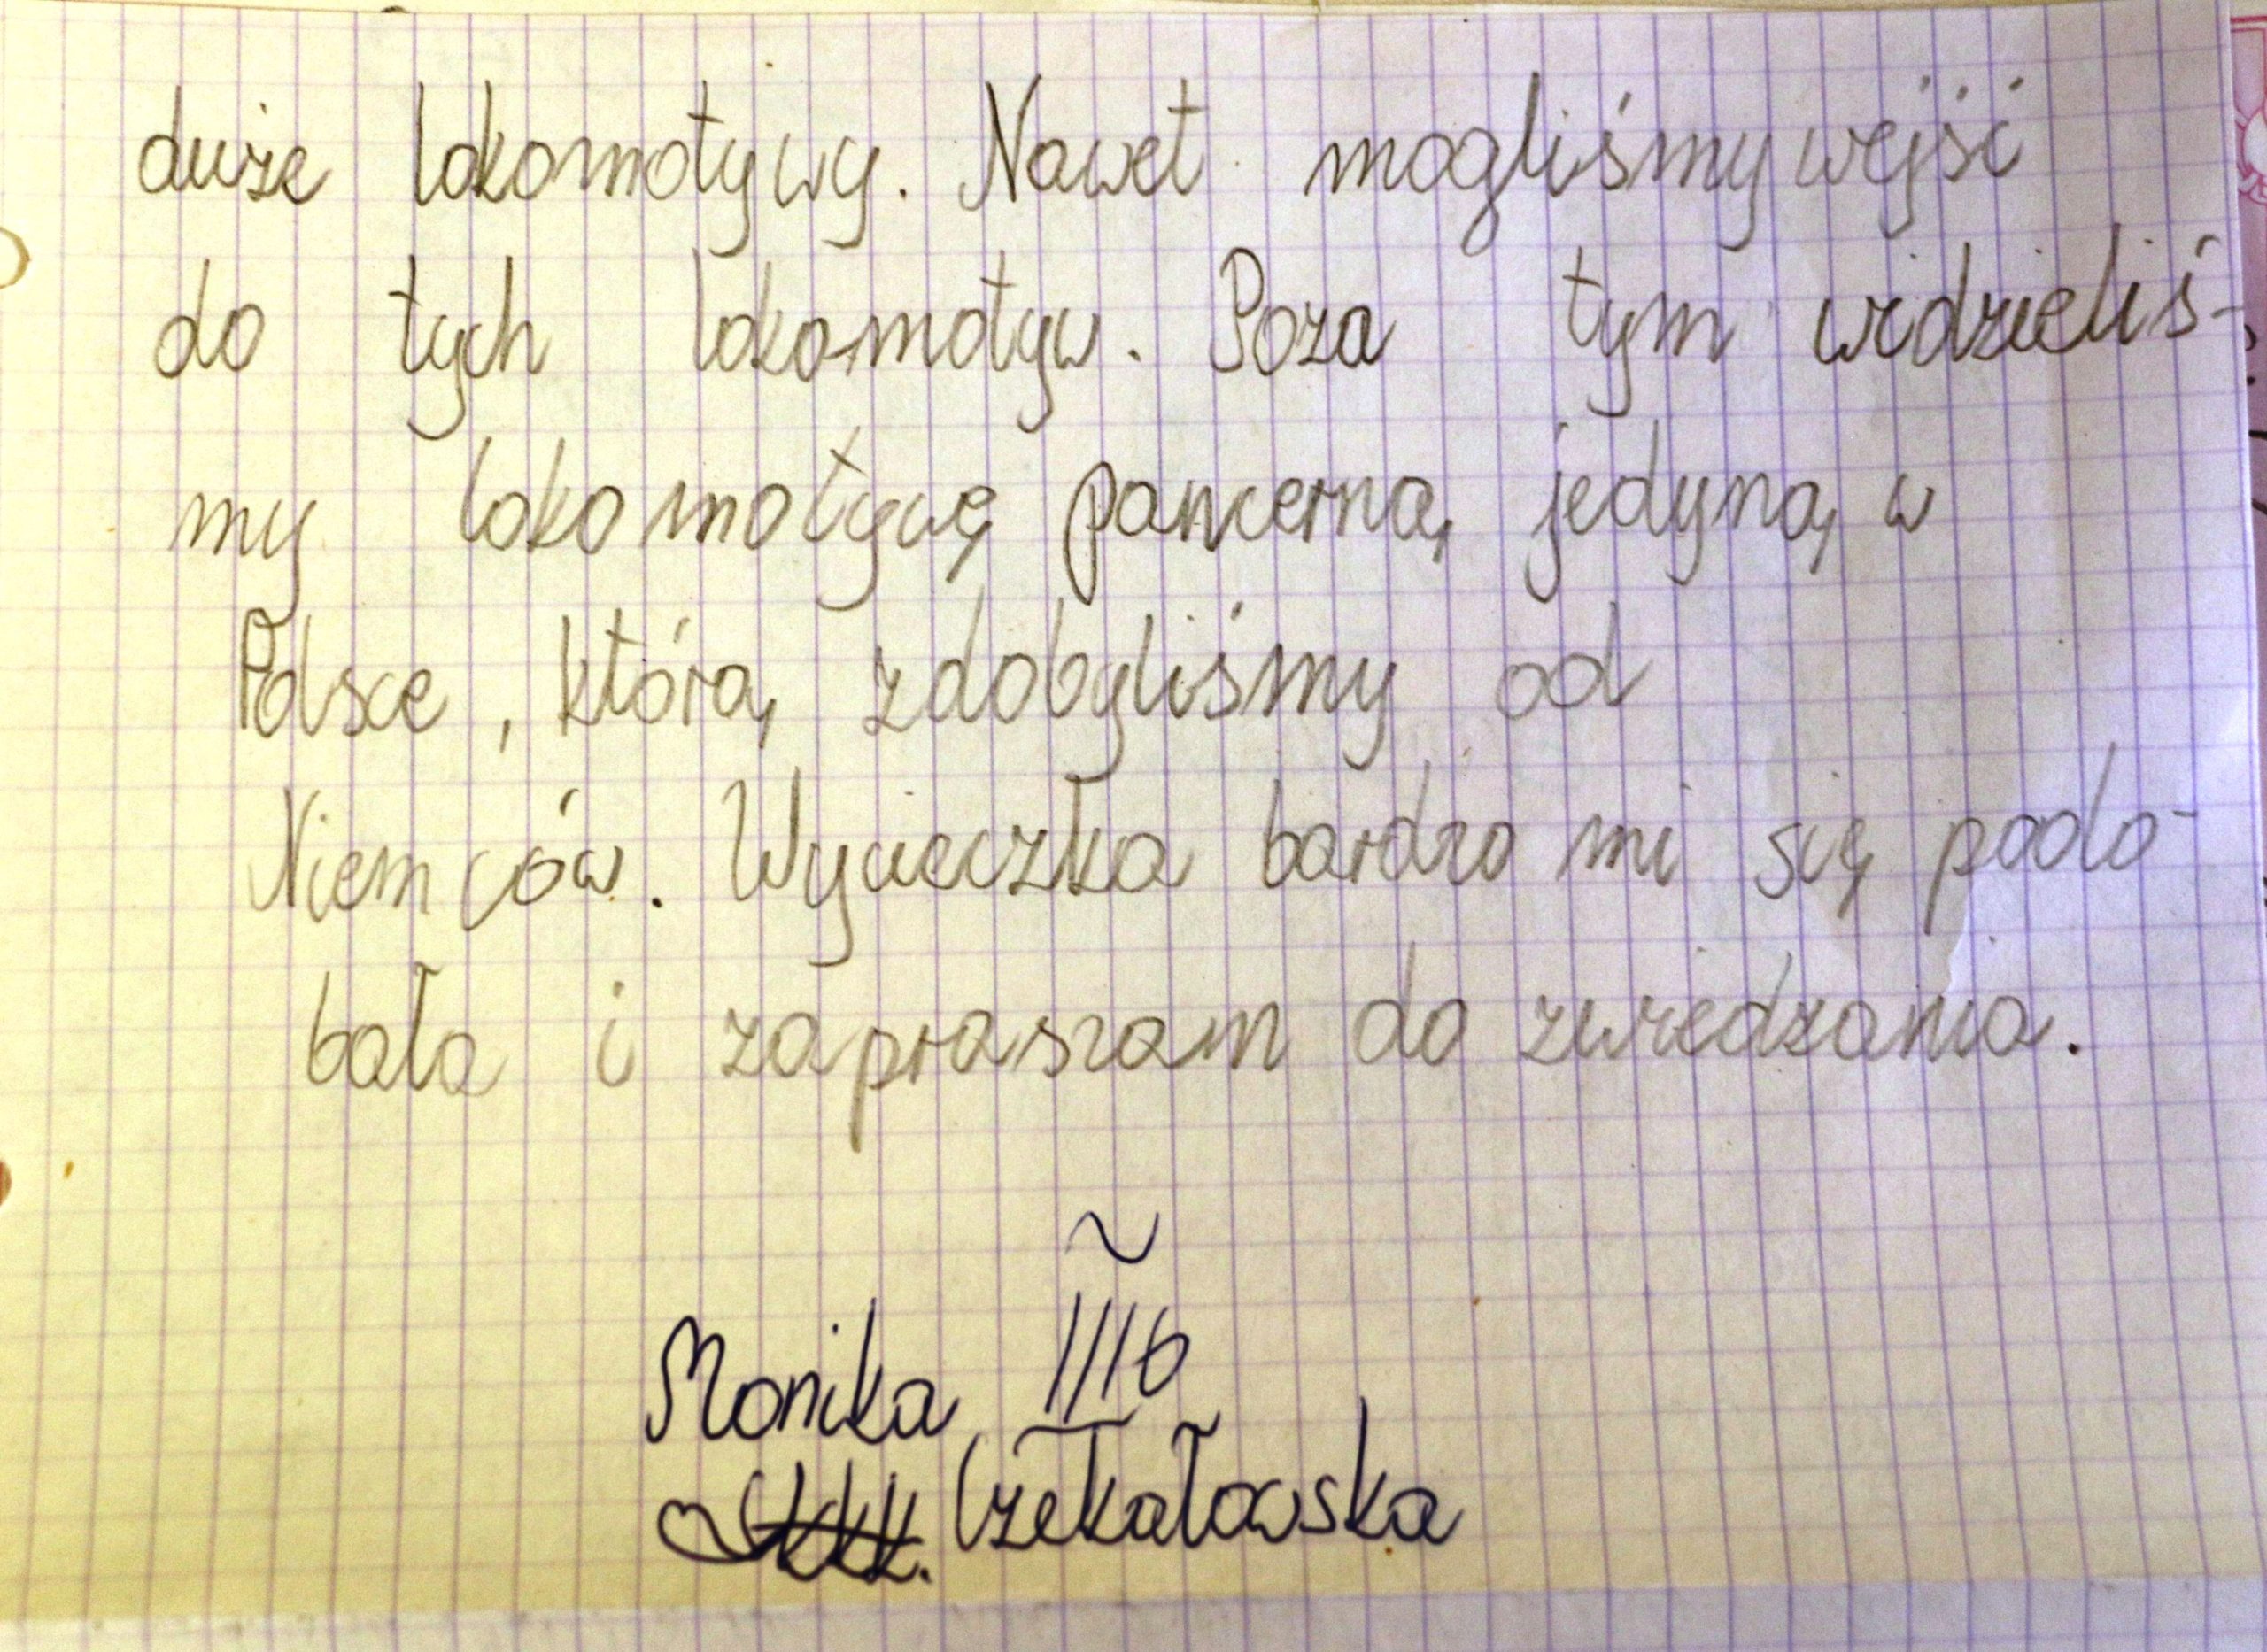 duże lokomotywy. Nawet mogliśmy wejść
do tych lokomotyw. Poza tym widzieliś-
my lokomotywę pancerną jedyną w
Polsce, którą zdobyliśmy od
Niemców. Wycieczka bardzo mi się podo-
bała i zapraszam do zwiedzania.
Monika IIIb
Czekałowska